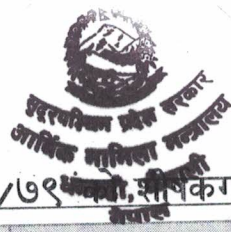 सुदूरपश्चिम प्रदेश सरकार
आर्थिक मामिला मन्त्रालय
/७९
शीर्षकग
नेपाल